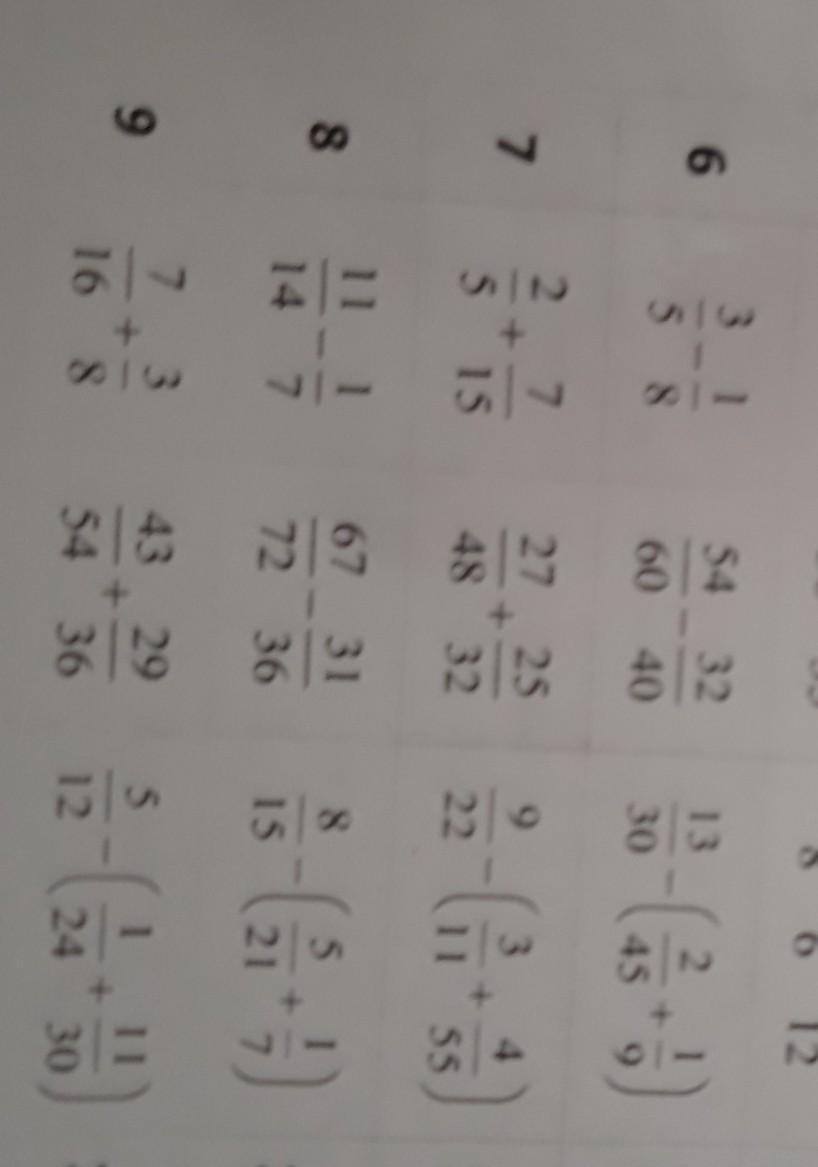 8 6 12
6 3/5 - 1/8 54/60 - 32/40 13/30 - (2/45 + 1/9)
7 2/5 + 7/15 27/48 + 25/32 9/22 - (3/11 + 4/55)
8 11/14 - 1/7 67/72 - 31/36 8/15 - (5/21 + 1/7)
9 7/16 + 3/8 43/54 + 29/36 5/12 - (1/24 + 11/30)